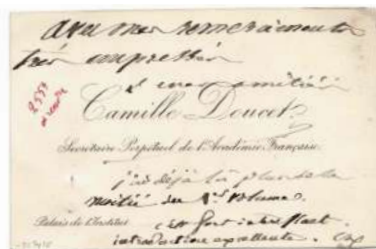 avec mes remerciements
très empressés
et mes amitiés
2557
Camille Doucet
Secrétaire Perpétuel de l'Académie Française.
j'ai déjà lu plus de la
moitié du 1er volume.
Palais de l'Institut
c'est fort intéressant.
introduction excellente.